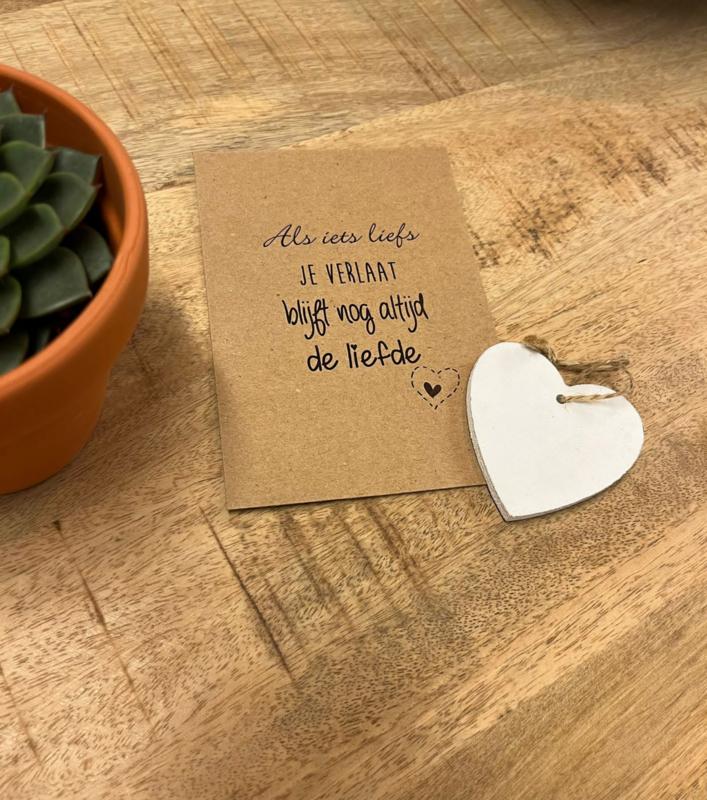 Als iets liefs
JE VERLAAT
blijft nog altijd
de liefde